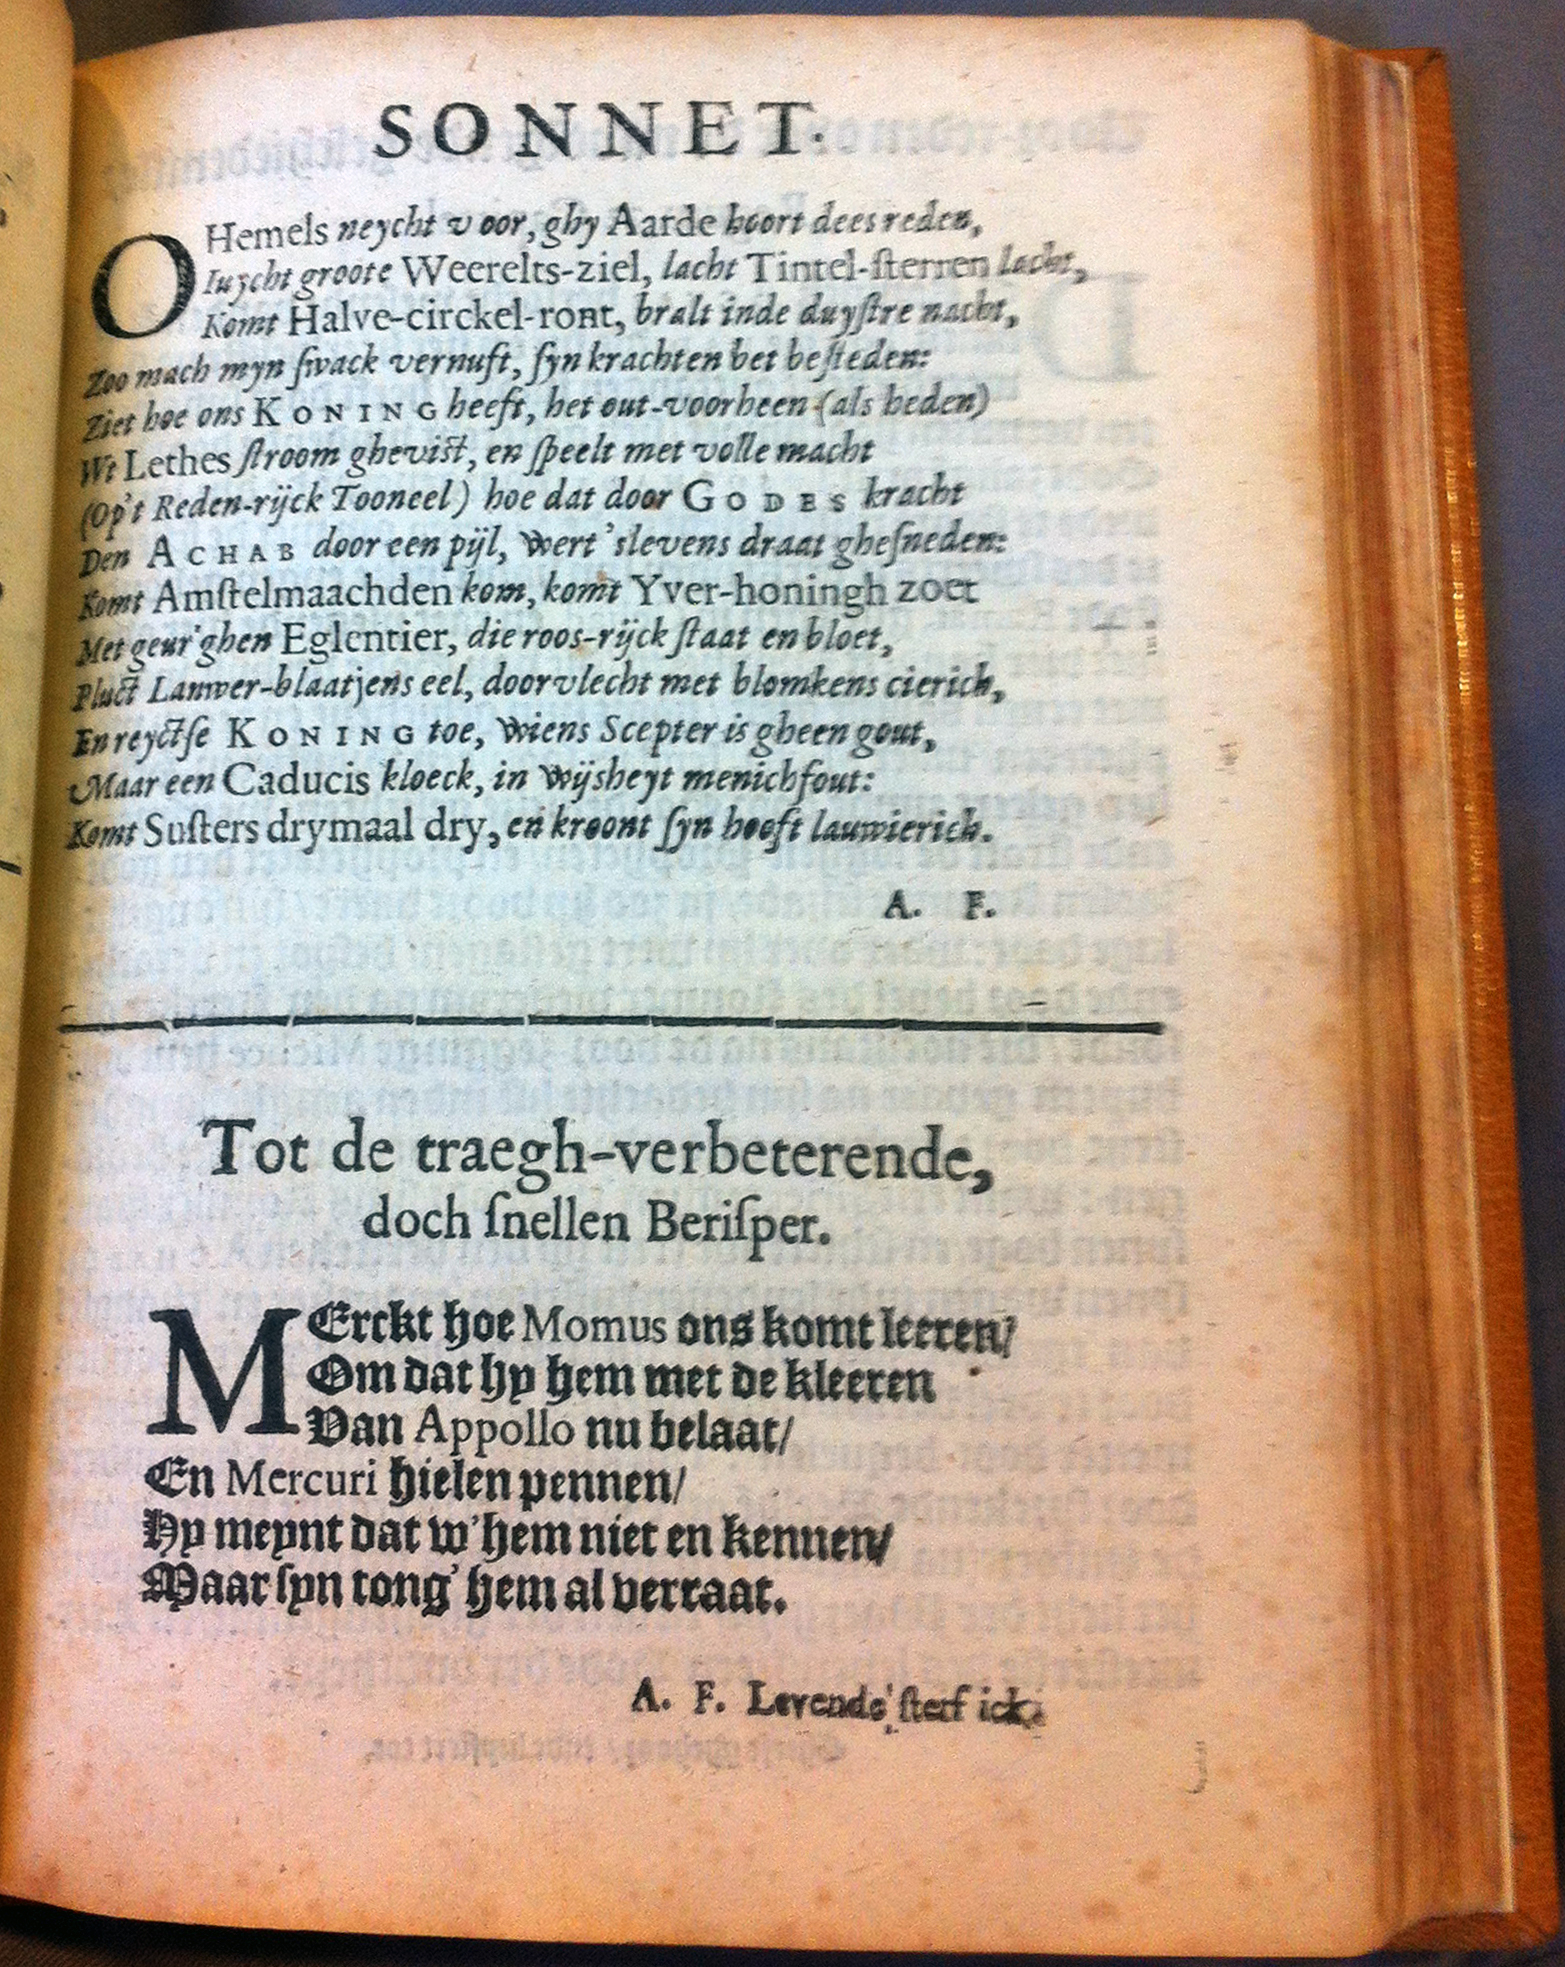 SONNET.
O Hemels neycht v oor, ghy Aarde hoort dees reden,
Iuycht groote Weerelts-ziel, lacht Tintel-ſterren lacht,
Komt Halve-circkel-ront, bralt inde duyſtre nacht,
Zoo mach myn ſwack vernuft, ſyn krachten bet beſteden:
Ziet hoe ons KONING heeft, het out-voorheen (als heden)
Wt Lethes ſtroom ghevist, en ſpeelt met volle macht
(Op't Reden-rijck Tooneel) hoe dat door GODES kracht
Den ACHAB door een pijl, wert 'slevens draat gheſneden:
Komt Amſtelmaachden kom, komt Yver-honingh zoet
Met geur'ghen Eglentier, die roos-rijck ſtaat en bloet,
Pluct Lauwer-blaatjens eel, doorvlecht met blomkens cierich,
En reyctſe KONING toe, wiens Scepter is gheen gout,
Maar een Caducis kloeck, in wijsheyt menichfout:
Komt Suſters drymaal dry, en kroont ſyn hooft lauwierich.
A. F.
Tot de traegh-verbeterende,
doch ſnellen Beriſper.
MErckt hoe Momus ons komt leeren/
Om dat hy hem met de kleeren
Van Appollo nu belaat/
En Mercuri hielen pennen/
Hy meynt dat w'hem niet en kennen/
Maar ſyn tong' hem al verraat.
A. F. Levende ſterf ick.